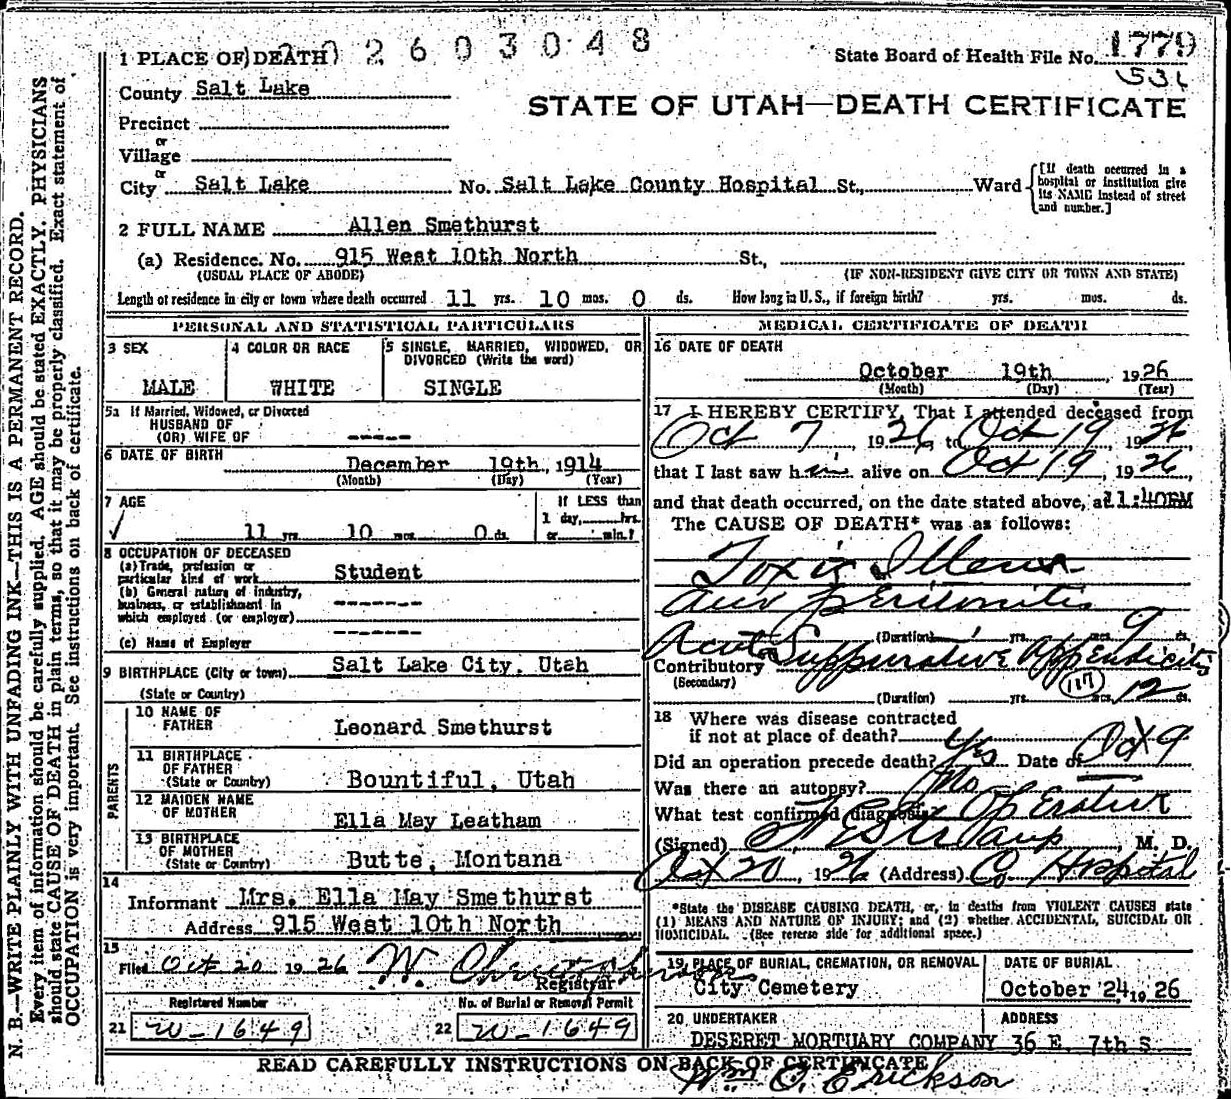 1 PLACE OF DEATH 2603048 State Board of Health File No. 1779
County Salt Lake 531
STATE OF UTAH—DEATH CERTIFICATE
Precinct
or
Village
or
City Salt Lake No. Salt Lake County Hospital St., Ward [If death occurred in a hospital or institution give its NAME instead of street and number.]
2 FULL NAME Allen Smethurst
(a) Residence. No. 915 West 10th North St.,
(USUAL PLACE OF ABODE) (IF NON-RESIDENT GIVE CITY OR TOWN AND STATE)
Length of residence in city or town where death occurred 11 yrs. 10 mos. 0 ds. How long in U. S., if foreign birth? yrs. mos. ds.
PERSONAL AND STATISTICAL PARTICULARS
3 SEX 4 COLOR OR RACE 5 SINGLE, MARRIED, WIDOWED, OR
DIVORCED (Write the word)
MALE WHITE SINGLE
5a If Married, Widowed, or Divorced
HUSBAND OF
(OR) WIFE OF -----
6 DATE OF BIRTH
December 19th, 1914
(Month) (Day) (Year)
7 AGE If LESS than
1 day, hrs.
11 yrs. 10 mos. 0 ds. or min.?
8 OCCUPATION OF DECEASED
(a) Trade, profession or
particular kind of work Student
(b) General nature of industry,
business, or establishment in
which employed (or employer) -------
(c) Name of Employer -------
9 BIRTHPLACE (City or town) Salt Lake City, Utah
(State or Country)
PARENTS
10 NAME OF
FATHER Leonard Smethurst
11 BIRTHPLACE
OF FATHER
(State or Country) Bountiful, Utah
12 MAIDEN NAME
OF MOTHER Ella May Leatham
13 BIRTHPLACE
OF MOTHER
(State or Country) Butte, Montana
14
Informant Mrs. Ella May Smethurst
Address 915 West 10th North
15
Filed Oct 20 1926 W. Christophersons
Registrar
Registered Number No. of Burial or Removal Permit
21 W-1649 22 W-1649
MEDICAL CERTIFICATE OF DEATH
16 DATE OF DEATH
October 19th, 1926
(Month) (Day) (Year)
17 I HEREBY CERTIFY, That I attended deceased from
Oct 7, 1926, to Oct 19, 1926
that I last saw him alive on Oct 19, 1926,
and that death occurred, on the date stated above, at 11:40PM
The CAUSE OF DEATH* was as follows:
Toxic Illeus
Peritonitis
(Duration) yrs. mos. 9 ds.
Acute Suppurative Appendicitis
Contributory
(Secondary)
117
(Duration) yrs. mos. 12 ds.
18 Where was disease contracted
if not at place of death?
Did an operation precede death? Yes Date of Oct 9
Was there an autopsy? No
What test confirmed diagnosis? Operation
(Signed) , M. D.
Oct 20, 1926 (Address) Co Hospital
*State the DISEASE CAUSING DEATH, or, in deaths from VIOLENT CAUSES state
(1) MEANS AND NATURE OF INJURY; and (2) whether ACCIDENTAL, SUICIDAL OR
HOMICIDAL. (See reverse side for additional space.)
19 PLACE OF BURIAL, CREMATION, OR REMOVAL DATE OF BURIAL
City Cemetery October 24, 1926
20 UNDERTAKER ADDRESS
DESERET MORTUARY COMPANY 36 E. 7th S.
READ CAREFULLY INSTRUCTIONS ON BACK OF CERTIFICATE
Wm O. Erickson
N. B.—WRITE PLAINLY WITH UNFADING INK—THIS IS A PERMANENT RECORD.
Every item of information should be carefully supplied. AGE should be stated EXACTLY. PHYSICIANS
should state CAUSE OF DEATH in plain terms, so that it may be properly classified. Exact statement of
OCCUPATION is very important. See instructions on back of certificate.